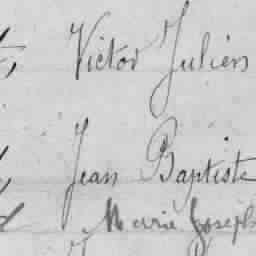 Victor Julien
Jean Baptiste
Marie Joseph